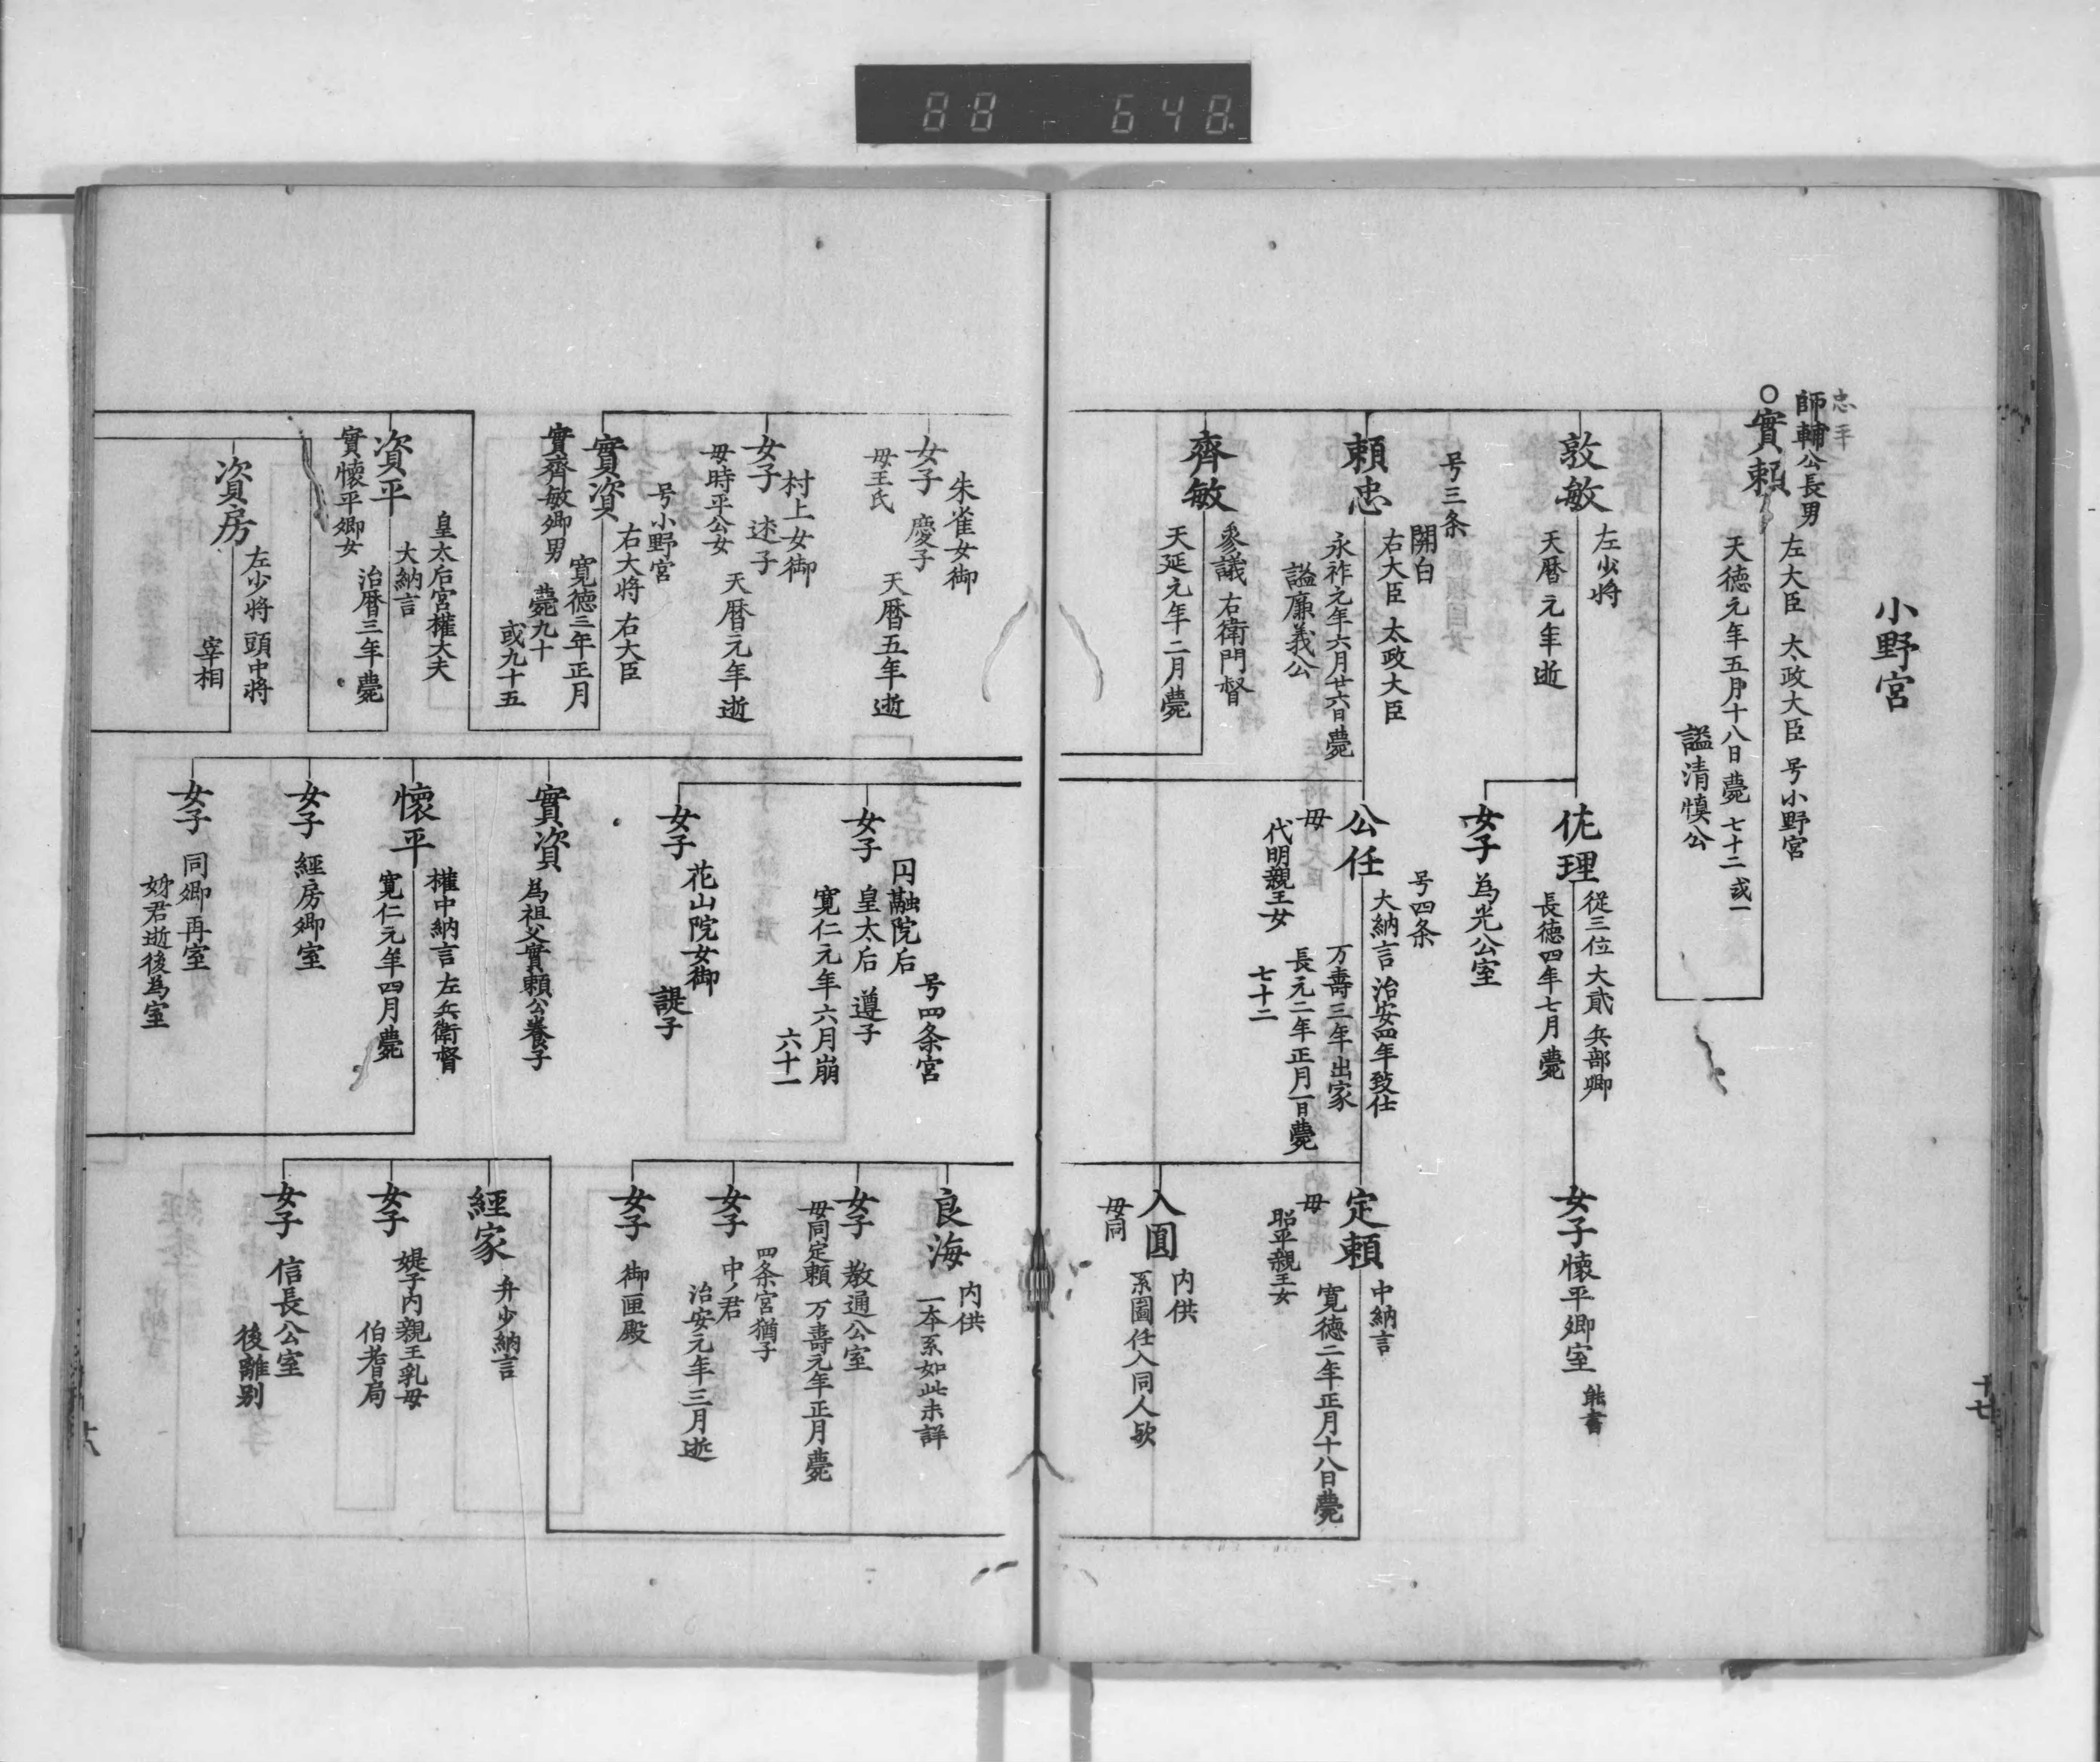 88 - 648
小野宮
忠平
師輔公長男
○實頼
左大臣 太政大臣 号小野宮
天徳元年五月十八日薨 七十二 或一
謚清慎公
敦敏
左少将
天暦元年逝
号三条
頼忠
関白
右大臣 太政大臣
永祚元年六月廿六日薨
謚廉義公
齊敏
叅議 右衛門督
天延元年二月薨
佐理
従三位 大貳 兵部卿
長徳四年七月薨
女子 為光公室
号四条
公任
大納言 治安四年致仕
万壽三年出家
長元二年正月一日薨
七十二
母
代明親王女
女子 懐平卿室 能書
定頼
中納言
寛徳二年正月十八日薨
母
昭平親王女
入圓
内供
系圖任入同人歟
母同
十七
朱雀女御
女子 慶子 天暦五年逝
母王氏
村上女御
女子 述子 天暦元年逝
母時平公女
号小野宮
實資
右大将 右大臣
寛徳三年正月
薨九十
或九十五
實齊敏卿男
皇太后宮権大夫
資平
大納言
治暦三年薨
實懐平卿女
資房
左少将 頭中将
宰相
号四条宮
円融院后
女子 皇太后 遵子
寛仁元年六月崩
六十一
女子 花山院女御
諟子
實資 為祖父實頼公養子
懐平
権中納言 左兵衛督
寛仁元年四月薨
女子 經房卿室
女子 同卿再室
姉君逝後為室
良海
内供
一本系如此未詳
女子 教通公室
母同定頼 万壽元年正月薨
四条宮猶子
女子 中ノ君
治安元年三月逝
女子 御匣殿
經家 弁少納言
女子 媞子内親王乳母
伯耆局
女子 信長公室
後離別